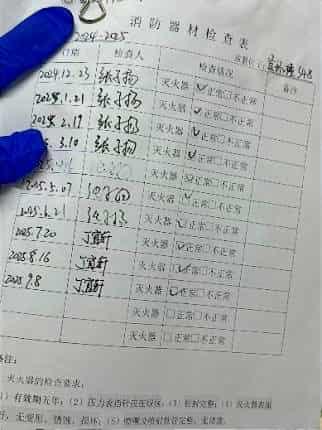 消防器材检查表
2024-2025
日期 检查人 检查情况 备注
2024.12.23 张子扬 灭火器 ☑正常☐不正常
2025.1.21 张子扬 灭火器 ☑正常☐不正常
2025.2.17 张子扬 灭火器 ☑正常☐不正常
3.10 张子扬 灭火器 ☑正常☐不正常
灭火器 ☑正常☐不正常
2025.5.07 灭火器 ☑正常☐不正常
2025.6.21 灭火器 ☑正常☐不正常
2025.7.20 丁寅轩 灭火器 ☑正常☐不正常
2025.8.16 丁寅轩 灭火器 ☑正常☐不正常
2025.9.8 丁寅轩 灭火器 ☑正常☐不正常
灭火器 ☐正常☐不正常
灭火器 ☐正常☐不正常
备注:
灭火器的检查要求:
(1)有效期五年;(2)压力表指针在绿区;(3)铅封完整;(4)灭火器表面
好,无变形、锈蚀、损坏;(5)喷嘴及喷射软管完整,无堵塞。